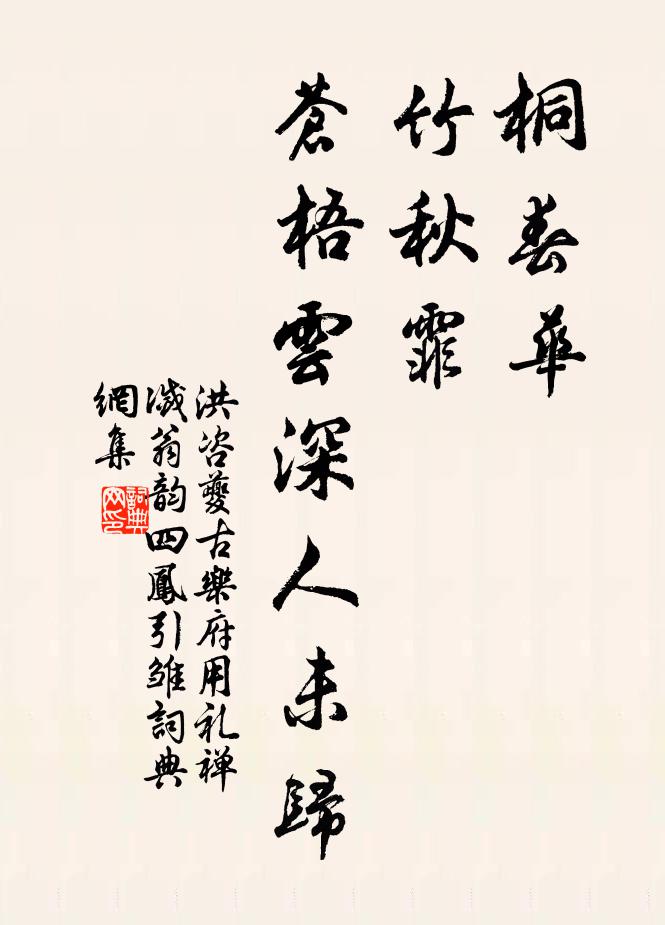 桐春華
竹秋霏
蒼梧雲深人未歸
洪咨夔古樂府用礼禅
滅翁韵四鳳引雏詞典
網集
詞典
网印